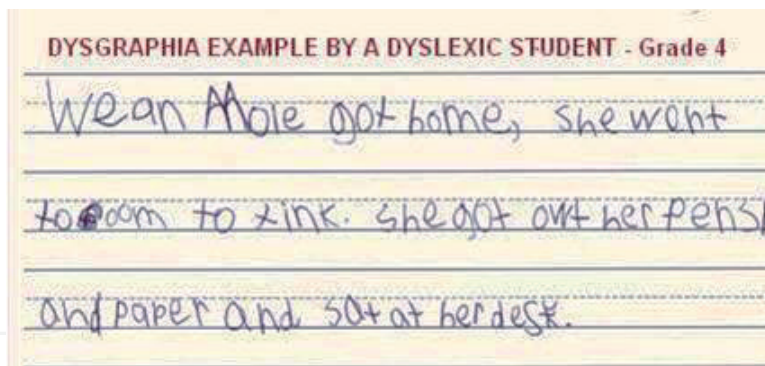 DYSGRAPHIA EXAMPLE BY A DYSLEXIC STUDENT - Grade 4
Wean Mole got home, she went
to room to tink. she got out her pensi
and paper and sat at her desk.